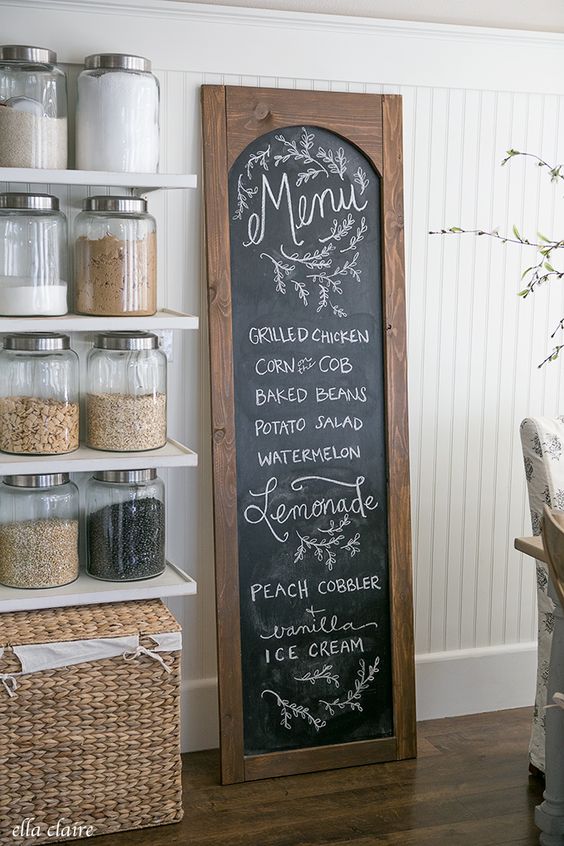 Menu
GRILLED CHICKEN
CORN on the COB
BAKED BEANS
POTATO SALAD
WATERMELON
Lemonade
PEACH COBBLER
+
vanilla
ICE CREAM
ella claire